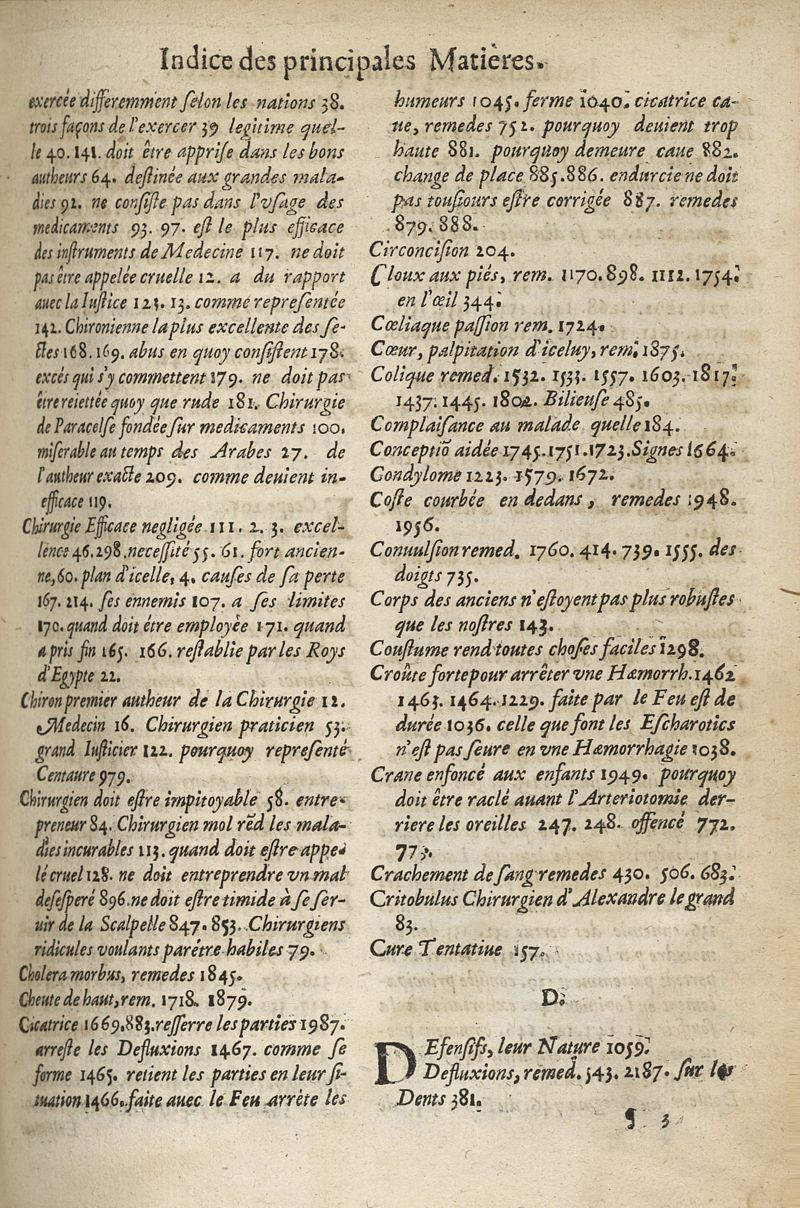 Indice des principales Matières.
exercée differemment ſelon les nations 38.
trois façons de l'exercer 39 legitime quel-
le 40. 141. doit être appriſe dans les bons
autheurs 64. deſtinée aux grandes mala-
dies 92. ne conſiſte pas dans l'vſage des
medicaments 93. 97. eſt le plus efficace
des inſtruments de Medecine 117. ne doit
pas être appelée cruelle 12. a du rapport
auec la Iuſtice 123. 13. comme repreſentée
142. Chironienne la plus excellente des ſe-
ctes 168. 169. abus en quoy conſiſtent 178.
excés qui s'y commettent 179. ne doit pas
être reiettée quoy que rude 181. Chirurgie
de Paracelſe fondée ſur medicaments 100.
miſerable au temps des Arabes 27. de
l'autheur exacte 209. comme deuient in-
efficace 119.
Chirurgie Efficace negligée 111. 2. 3. excel-
lence 46. 298. neceſſité 55. 61. fort ancien-
ne, 60. plan d'icelle, 4. cauſes de ſa perte
167. 214. ſes ennemis 107. a ſes limites
170. quand doit étre employée 171. quand
a pris fin 165. 166. reſtablie par les Roys
d'Egypte 22.
Chiron premier autheur de la Chirurgie 12.
Medecin 16. Chirurgien praticien 53.
grand Iuſticier 122. pourquoy repreſenté
Centaure 979.
Chirurgien doit eſtre impitoyable 58. entre-
preneur 84. Chirurgien mol rẽd les mala-
dies incurables 113. quand doit eſtre appe-
lé cruel 128. ne doit entreprendre vn mal
deſeſperé 896. ne doit eſtre timide à ſe ſer-
uir de la Scalpelle 847. 853. Chirurgiens
ridicules voulants parétre habiles 79.
Cholera morbus, remedes 1845.
Cheute de haut, rem. 1718. 1879.
Cicatrice 1669. 883. reſſerre les parties 1987.
arreſte les Defluxions 1467. comme ſe
forme 1465. retient les parties en leur ſi-
tuation 1466. faite auec le Feu arrête les
humeurs 1045. ferme 1040. cicatrice ca-
ue, remedes 752. pourquoy deuient trop
haute 881. pourquoy demeure caue 882.
change de place 885. 886. endurcie ne doit
pas touſiours eſtre corrigée 887. remedes
879. 888.
Circonciſion 204.
Cloux aux piés, rem. 1170. 898. 1112. 1754.
en l'œil 344.
Cœliaque paſſion rem. 1724.
Cœur, palpitation d'iceluy, rem. 1875.
Colique remed. 1532. 1533. 1557. 1603. 1817.
1437. 1445. 1802. Bilieuſe 485.
Complaiſance au malade quelle 184.
Conceptiõ aidée 1745. 1751. 1723. Signes 1664.
Condylome 1223. 1579. 1672.
Coſte courbée en dedans, remedes 1948.
1956.
Conuulſion remed. 1760. 414. 739. 1555. des
doigts 735.
Corps des anciens n'eſtoyent pas plus robuſtes
que les noſtres 143.
Couſtume rend toutes choſes faciles 1298.
Croûte forte pour arrêter vne Hæmorrh. 1462
1463. 1464. 1229. faite par le Feu eſt de
durée 1036. celle que font les Eſcharotics
n'eſt pas ſeure en vne Hæmorrhagie 1038.
Crane enfoncé aux enfants 1949. pourquoy
doit être raclé auant l'Arteriotomie der-
riere les oreilles 247. 248. offencé 772.
773.
Crachement de ſang remedes 430. 506. 683.
Critobulus Chirurgien d'Alexandre le grand
83.
Cure Tentatiue 157.
D.
DEfenſifs, leur Nature 1059.
Defluxions, remed. 543. 2187. ſur les
Dents 381.
¶ 3